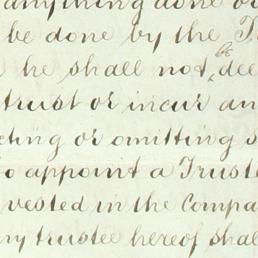 anything done or
be done by the T
he shall not be dee
trust or incur an
cting or omitting s
to appoint a Truste
vested in the Compa
ny trustee hereof shal